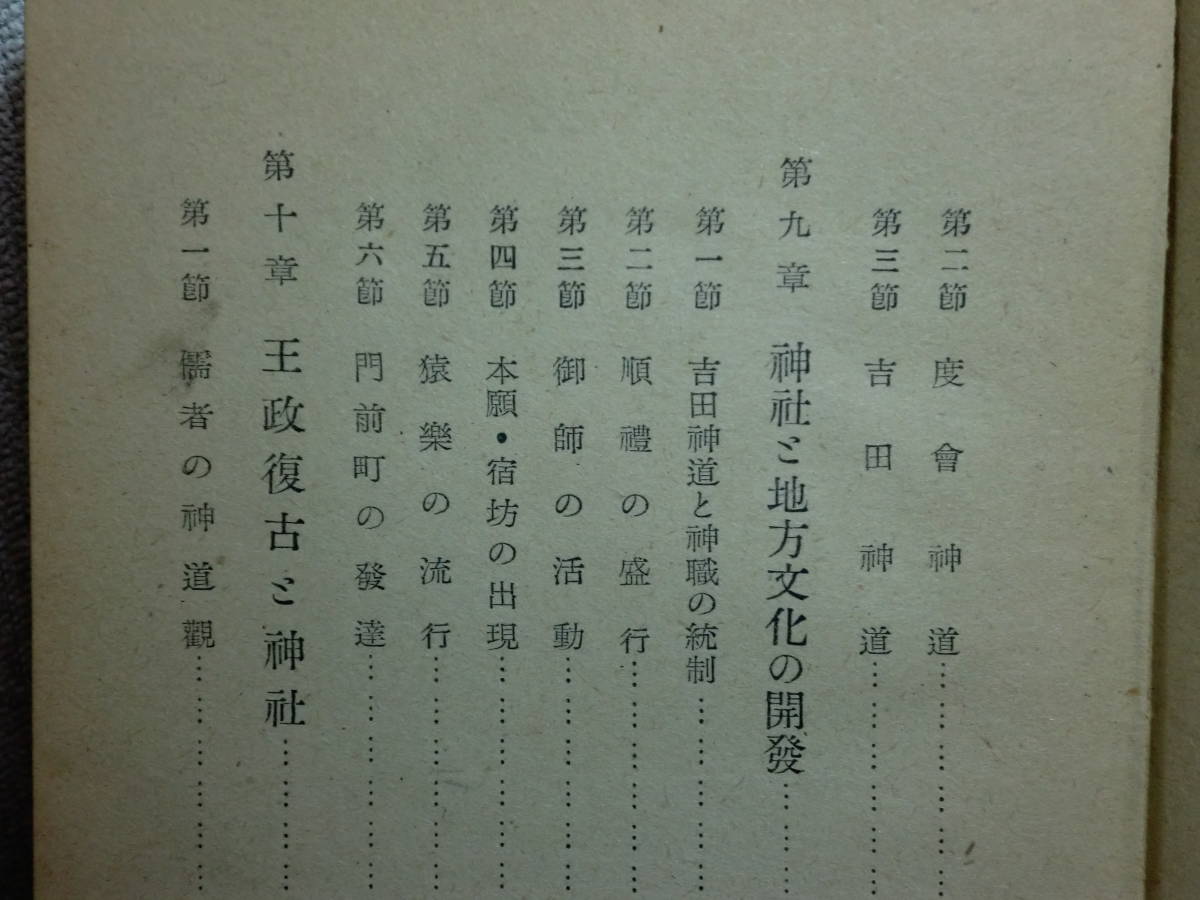 第二節 度會神道……………
第三節 吉田神道……………
第九章 神社と地方文化の開發………
第一節 吉田神道と神職の統制…………
第二節 順禮の盛行……………
第三節 御師の活動……………
第四節 本願・宿坊の出現……………
第五節 猿樂の流行……………
第六節 門前町の發達……………
第十章 王政復古と神社…………
第一節 儒者の神道觀……………